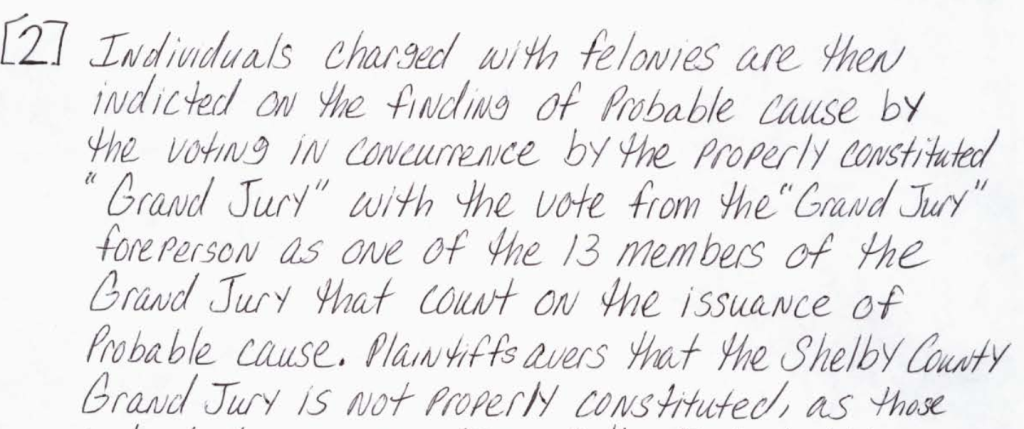 [2] Individuals charged with felonies are then
indicted on the finding of Probable cause by
the voting in concurrence by the Properly constituted
"Grand Jury" with the vote from the "Grand Jury"
foreperson as one of the 13 members of the
Grand Jury that count on the issuance of
Probable cause. Plaintiffs avers that the Shelby County
Grand Jury is not Properly constituted, as those